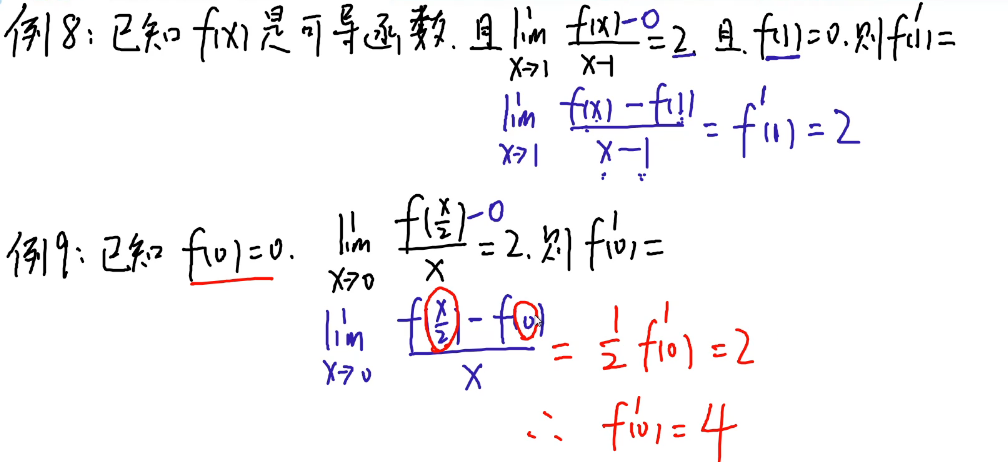 例8：已知 f(x) 是可导函数. 且 lim_{x→1} (f(x)-0)/(x-1) = 2 且 f(1)=0. 则 f'(1)=
lim_{x→1} (f(x)-f(1))/(x-1) = f'(1) = 2
例9：已知 f(0)=0. lim_{x→0} (f(x/2)-0)/x = 2. 则 f'(0)=
lim_{x→0} (f(x/2)-f(0))/x = 1/2 f'(0) = 2
∴ f'(0) = 4